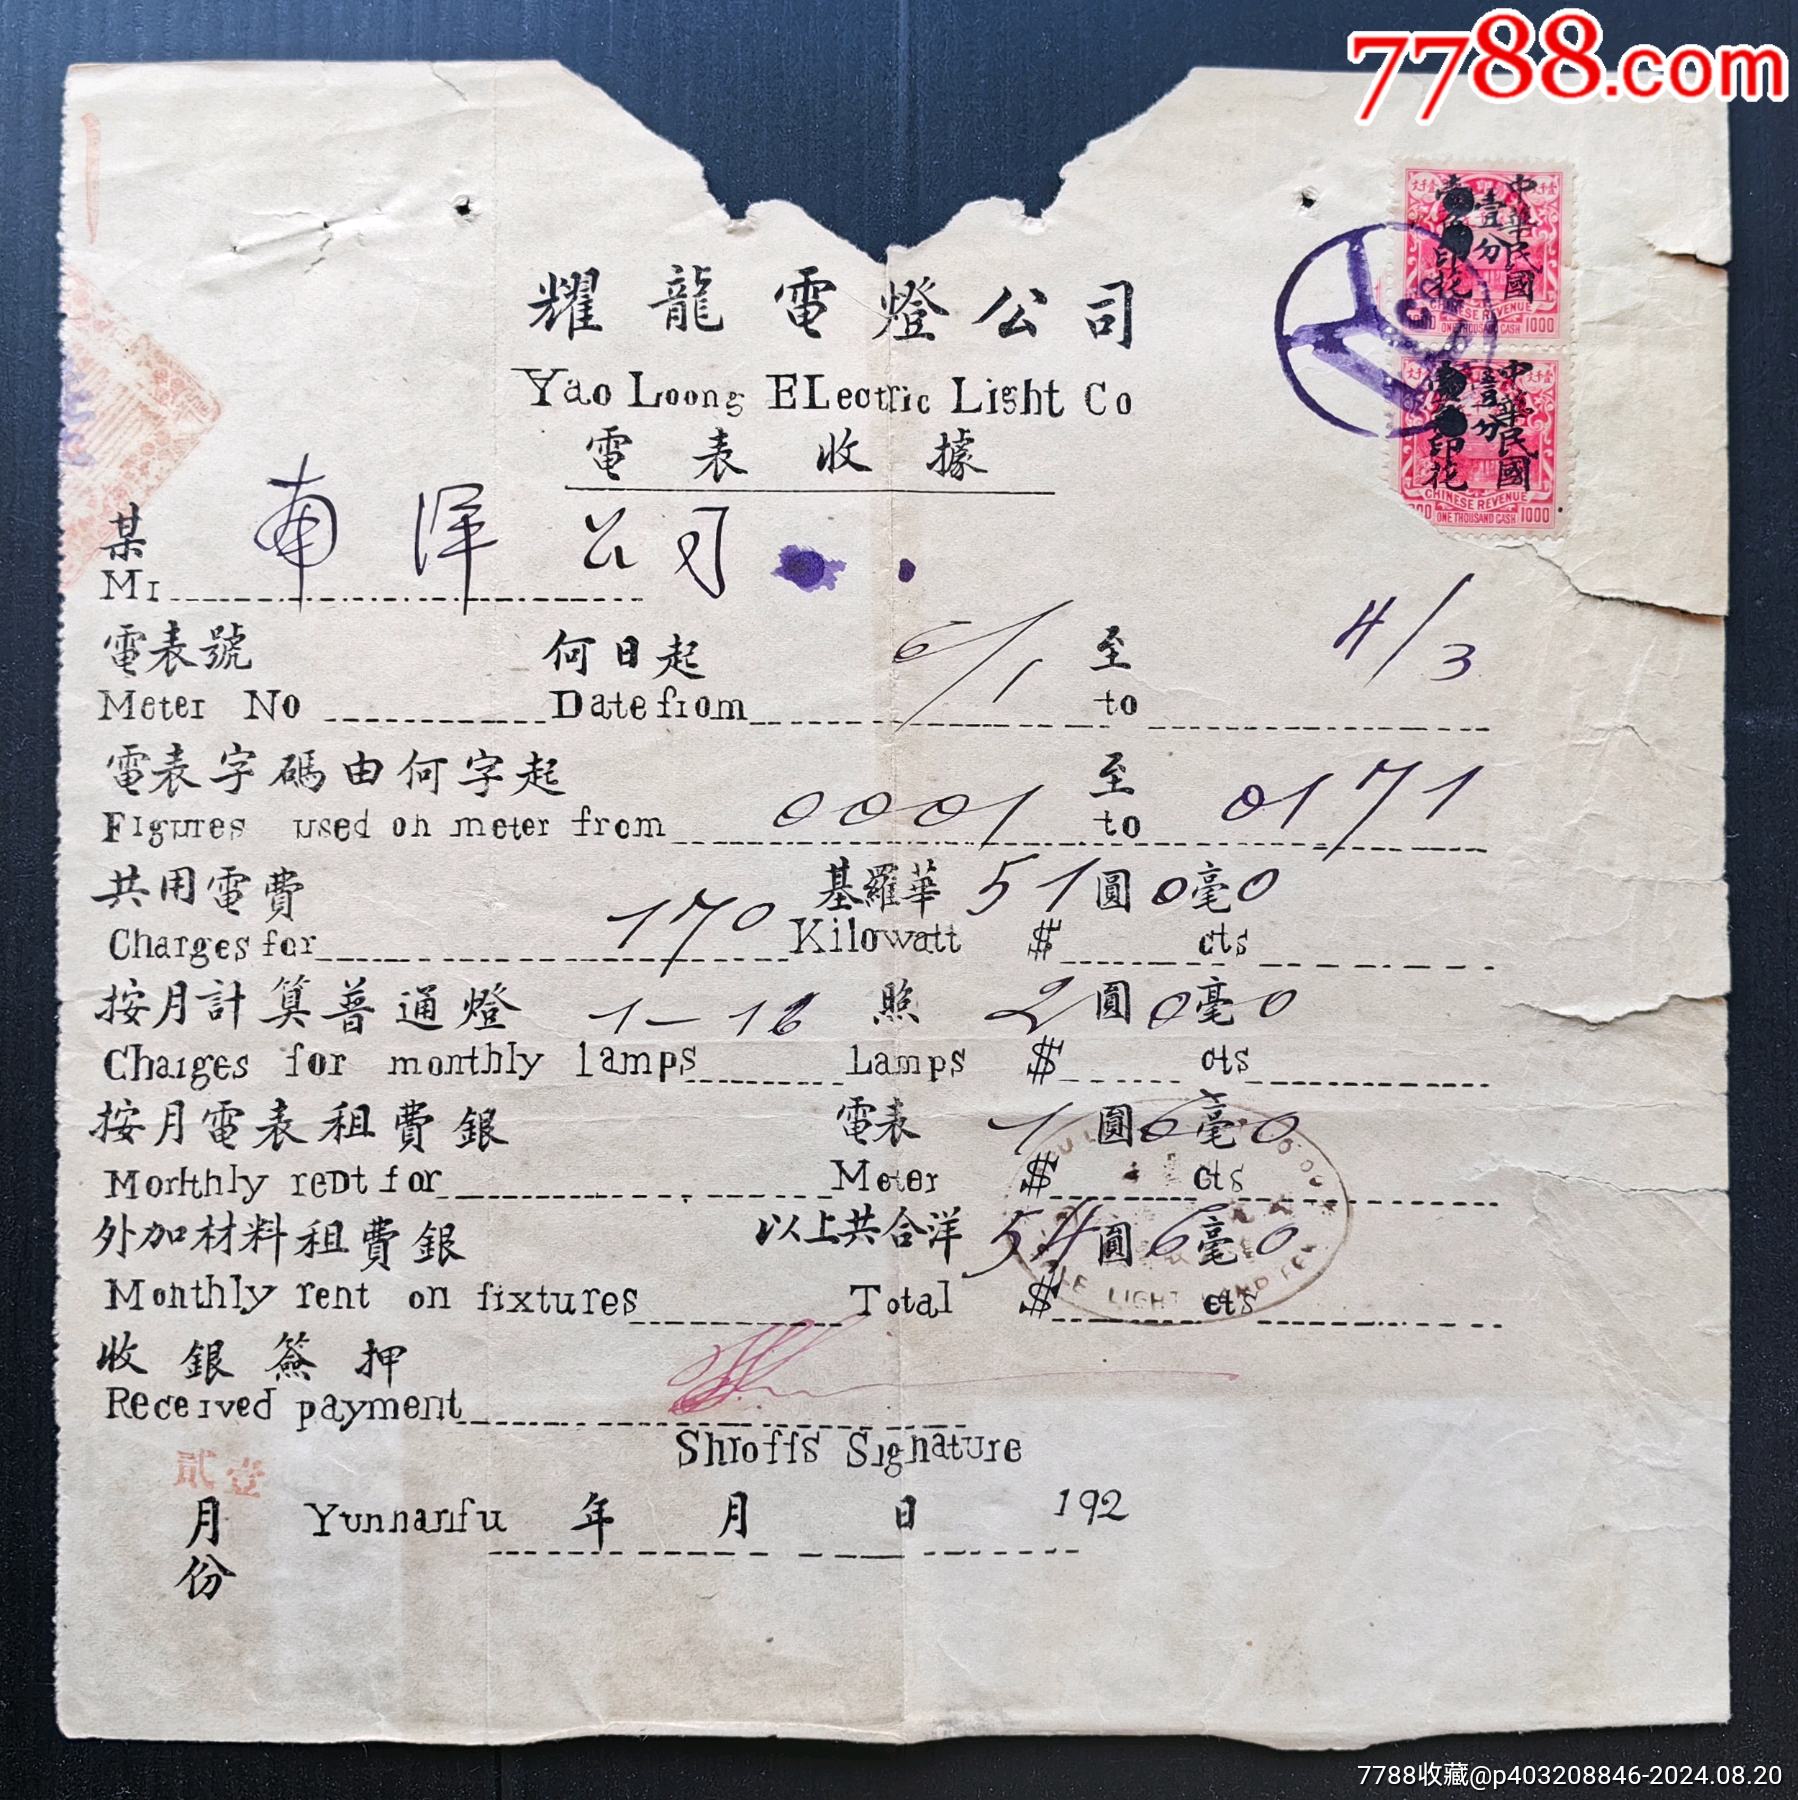 7788.com
中華民國
壹分
印花
CHINESE REVENUE
1000 ONE THOUSAND CASH 1000
中華民國
壹分
印花
CHINESE REVENUE
ONE THOUSAND CASH 1000
耀龍電燈公司
Yao Loong ELectric Light Co
電表收據
某 南洋公司
Mr
電表號 何日起 6/1 至 4/3
Meter No Date from to
電表字碼由何字起 0001 至 0171
Figures used on meter from to
共用電費 170 基羅華 51圓0毫0
Charges for Kilowatt $ cts
按月計算普通燈 1-16 照 2圓0毫0
Charges for monthly lamps Lamps $ cts
按月電表租費銀 電表 1圓6毫0
Monthly rent for Meter $ cts
外加材料租費銀 以上共合洋 54圓6毫0
Monthly rent on fixtures Total $ cts
LIGHT
收銀簽押
Received payment
Shroffs Signature
貳壹
月份 Yunnanfu 年 月 日 192
7788收藏@p403208846-2024.08.20